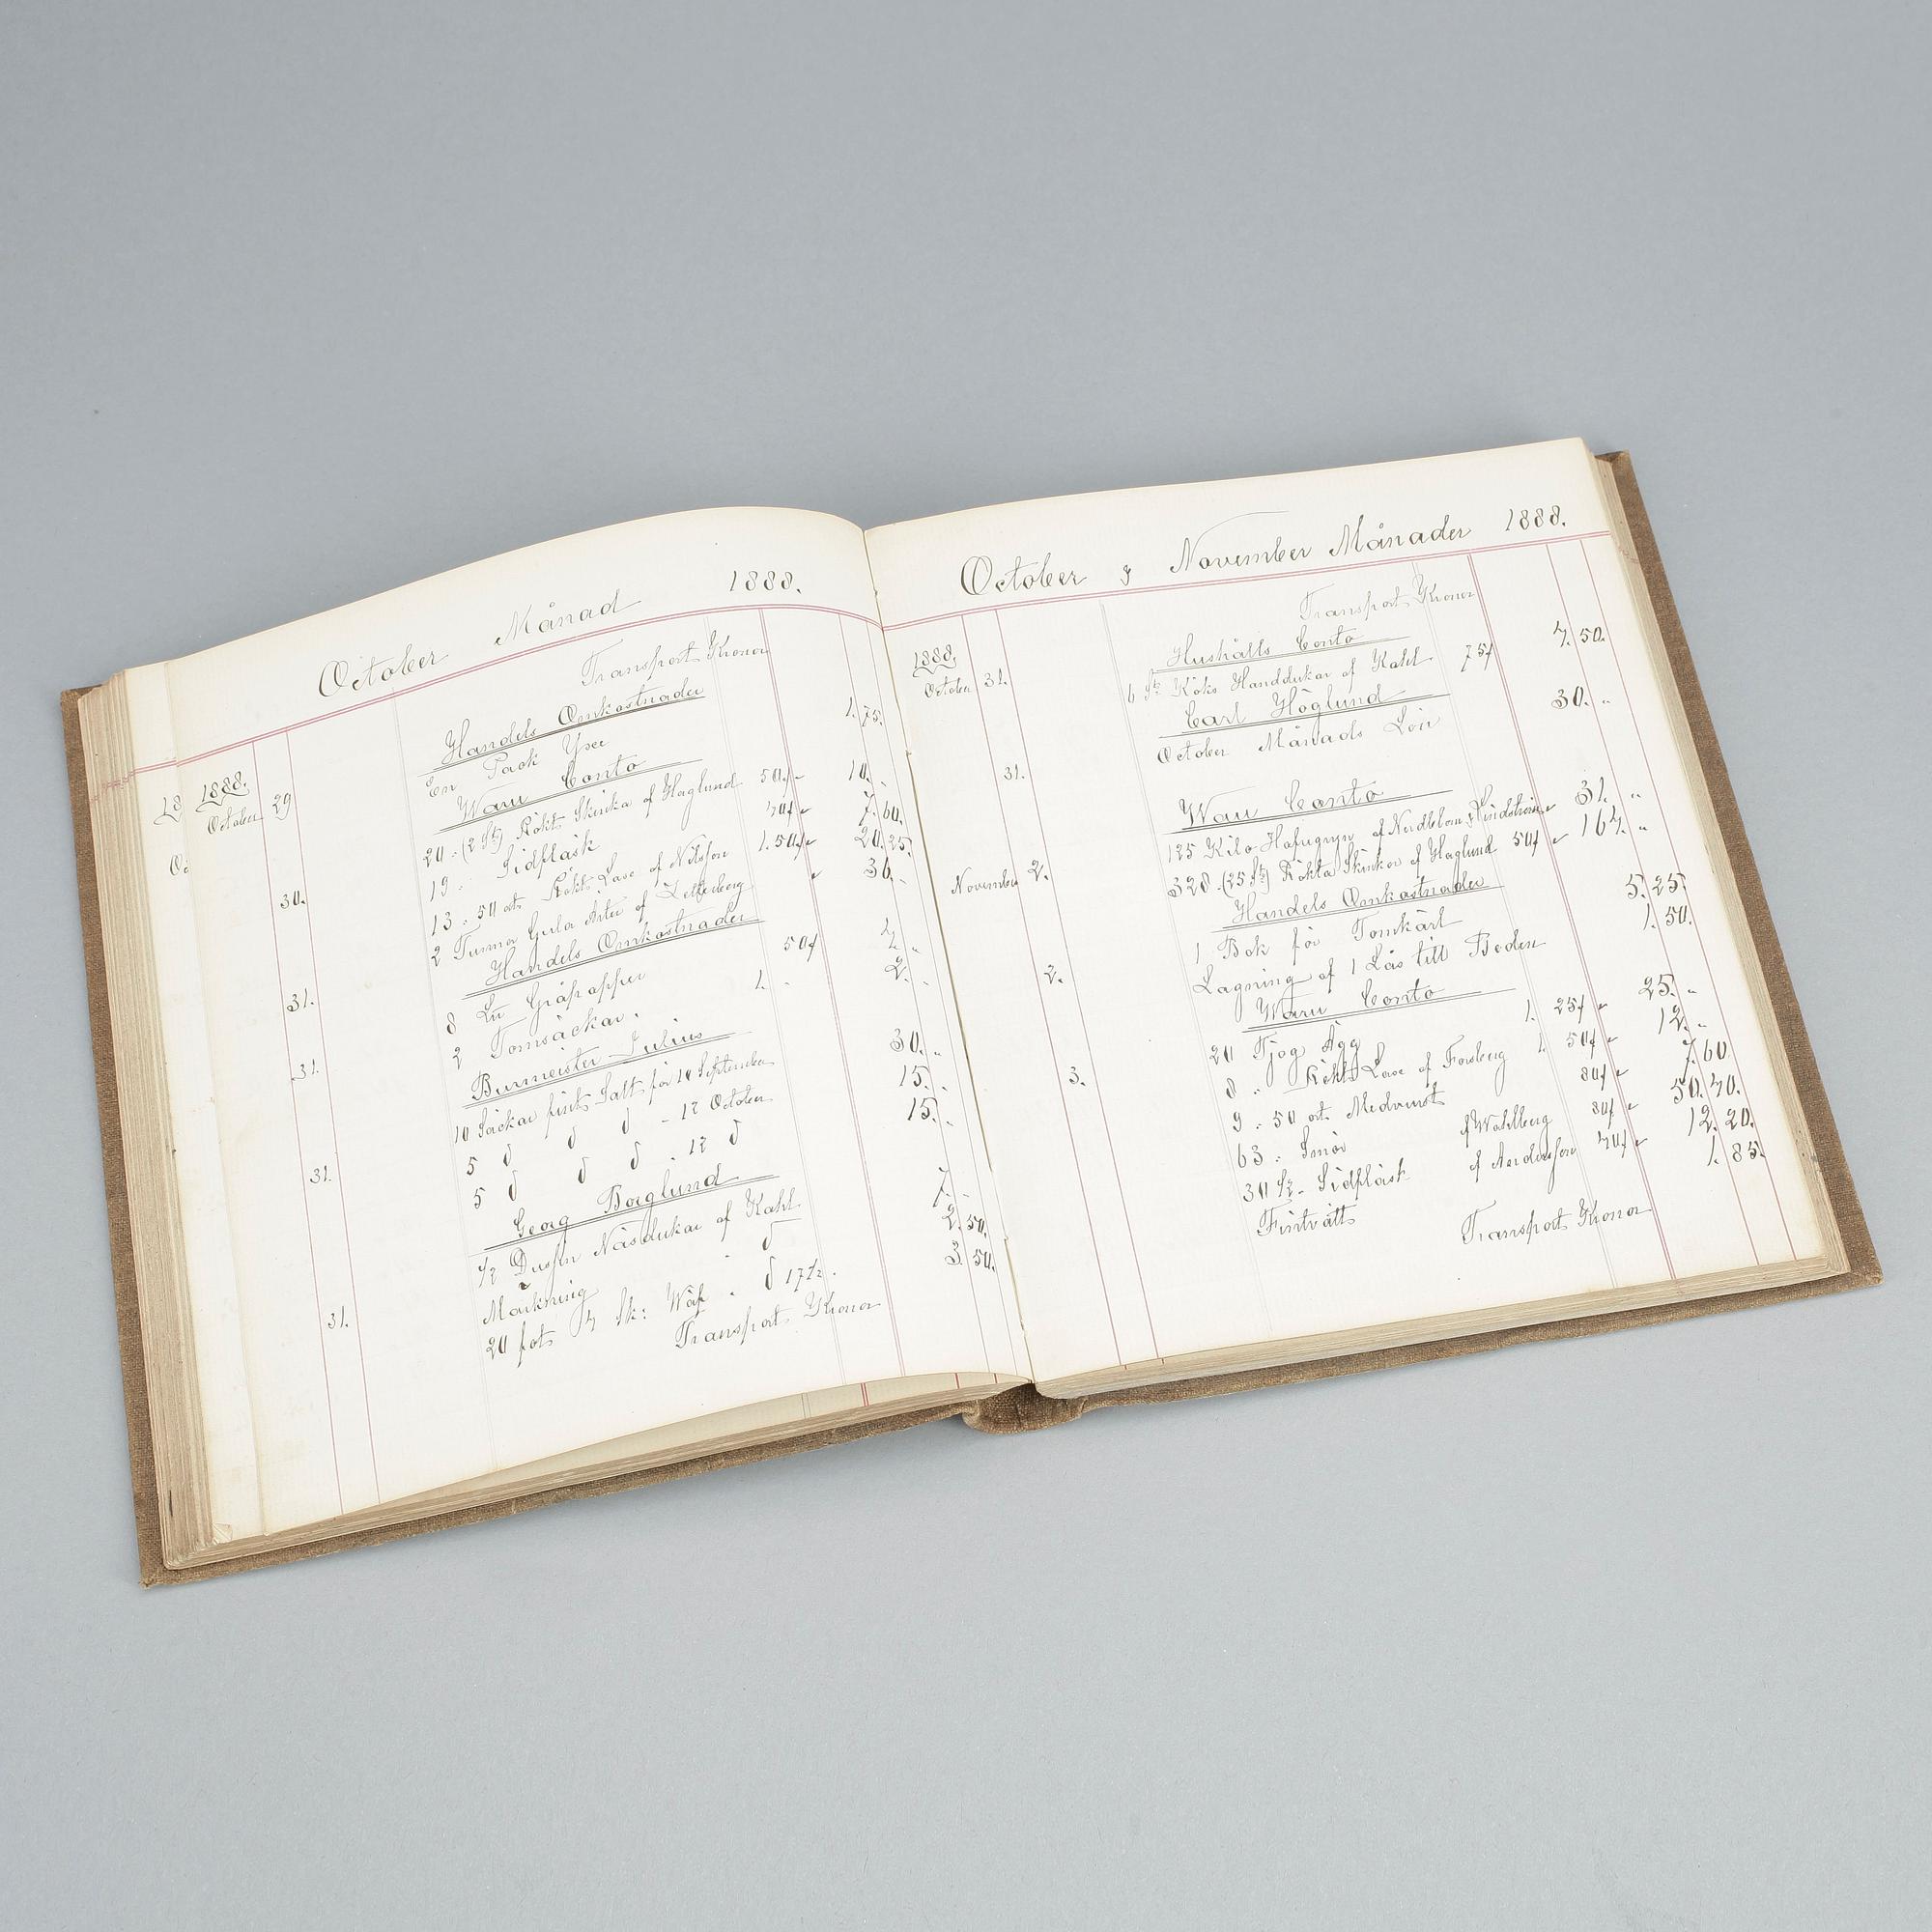 October Månad 1888.
Transport Kronor
1888.
October 29
Handels Omkostnader
En Pack 1. 75.
Waru Conto
20 " (2 St) Rökt Skinka af Haglund 50 f 10. "
19 " Sidfläsk 40 f 7. 60.
30. 13 " 50 ort Rökt Laxe af Nilsson 1. 50 f 20. 25.
2 Tunnor Gula Ärter af 36. "
Handels Omkostnader
31. 8 Gråpapper 50 f 4. "
2 Tomsäckar. 1. " 2. "
Burmeister Julius
31. 10 Säckar fint Salt för 18 September 30. "
5 d d d " 12 October 15. "
5 d d d " 12 d 15. "
Georg Borglund
31. 1/2 Dussin Näsdukar af Kahl 7. "
Märkning " d 2. 50.
31. 20 fot " d 17 1/2. 3. 50.
Transport Kronor
October & November Månader 1888.
Transport Kronor
1888.
October 31.
Hushålls Conto
6 St Köks Handdukar af Kahl 75 f 4. 50.
Carl Höglund
31. October Månads Lön 30. "
Waru Conto
125 Kilo Hafregryn af Nordblom & Lindström 31. "
November 2. 328 " (25 St) Rökta Skinkor af Haglund 50 f 164. "
Handels Omkostnader
1 Bok för Tomkärl 5. 25.
2. Lagning af 1 Lås till Boden 1. 50.
Waru Conto
20 Tjog Ägg 1. 25 f 25. "
3. 8 " Rökt Laxe af Forsberg 1. 50 f 12. "
9 " 50 ort Medvurst 80 f 7. 60
63 " Smör af Wahlberg 80 f 50. 40.
30 1/2 " Sidfläsk af Andersson 40 f 12. 20.
1. 85.
Transport Kronor